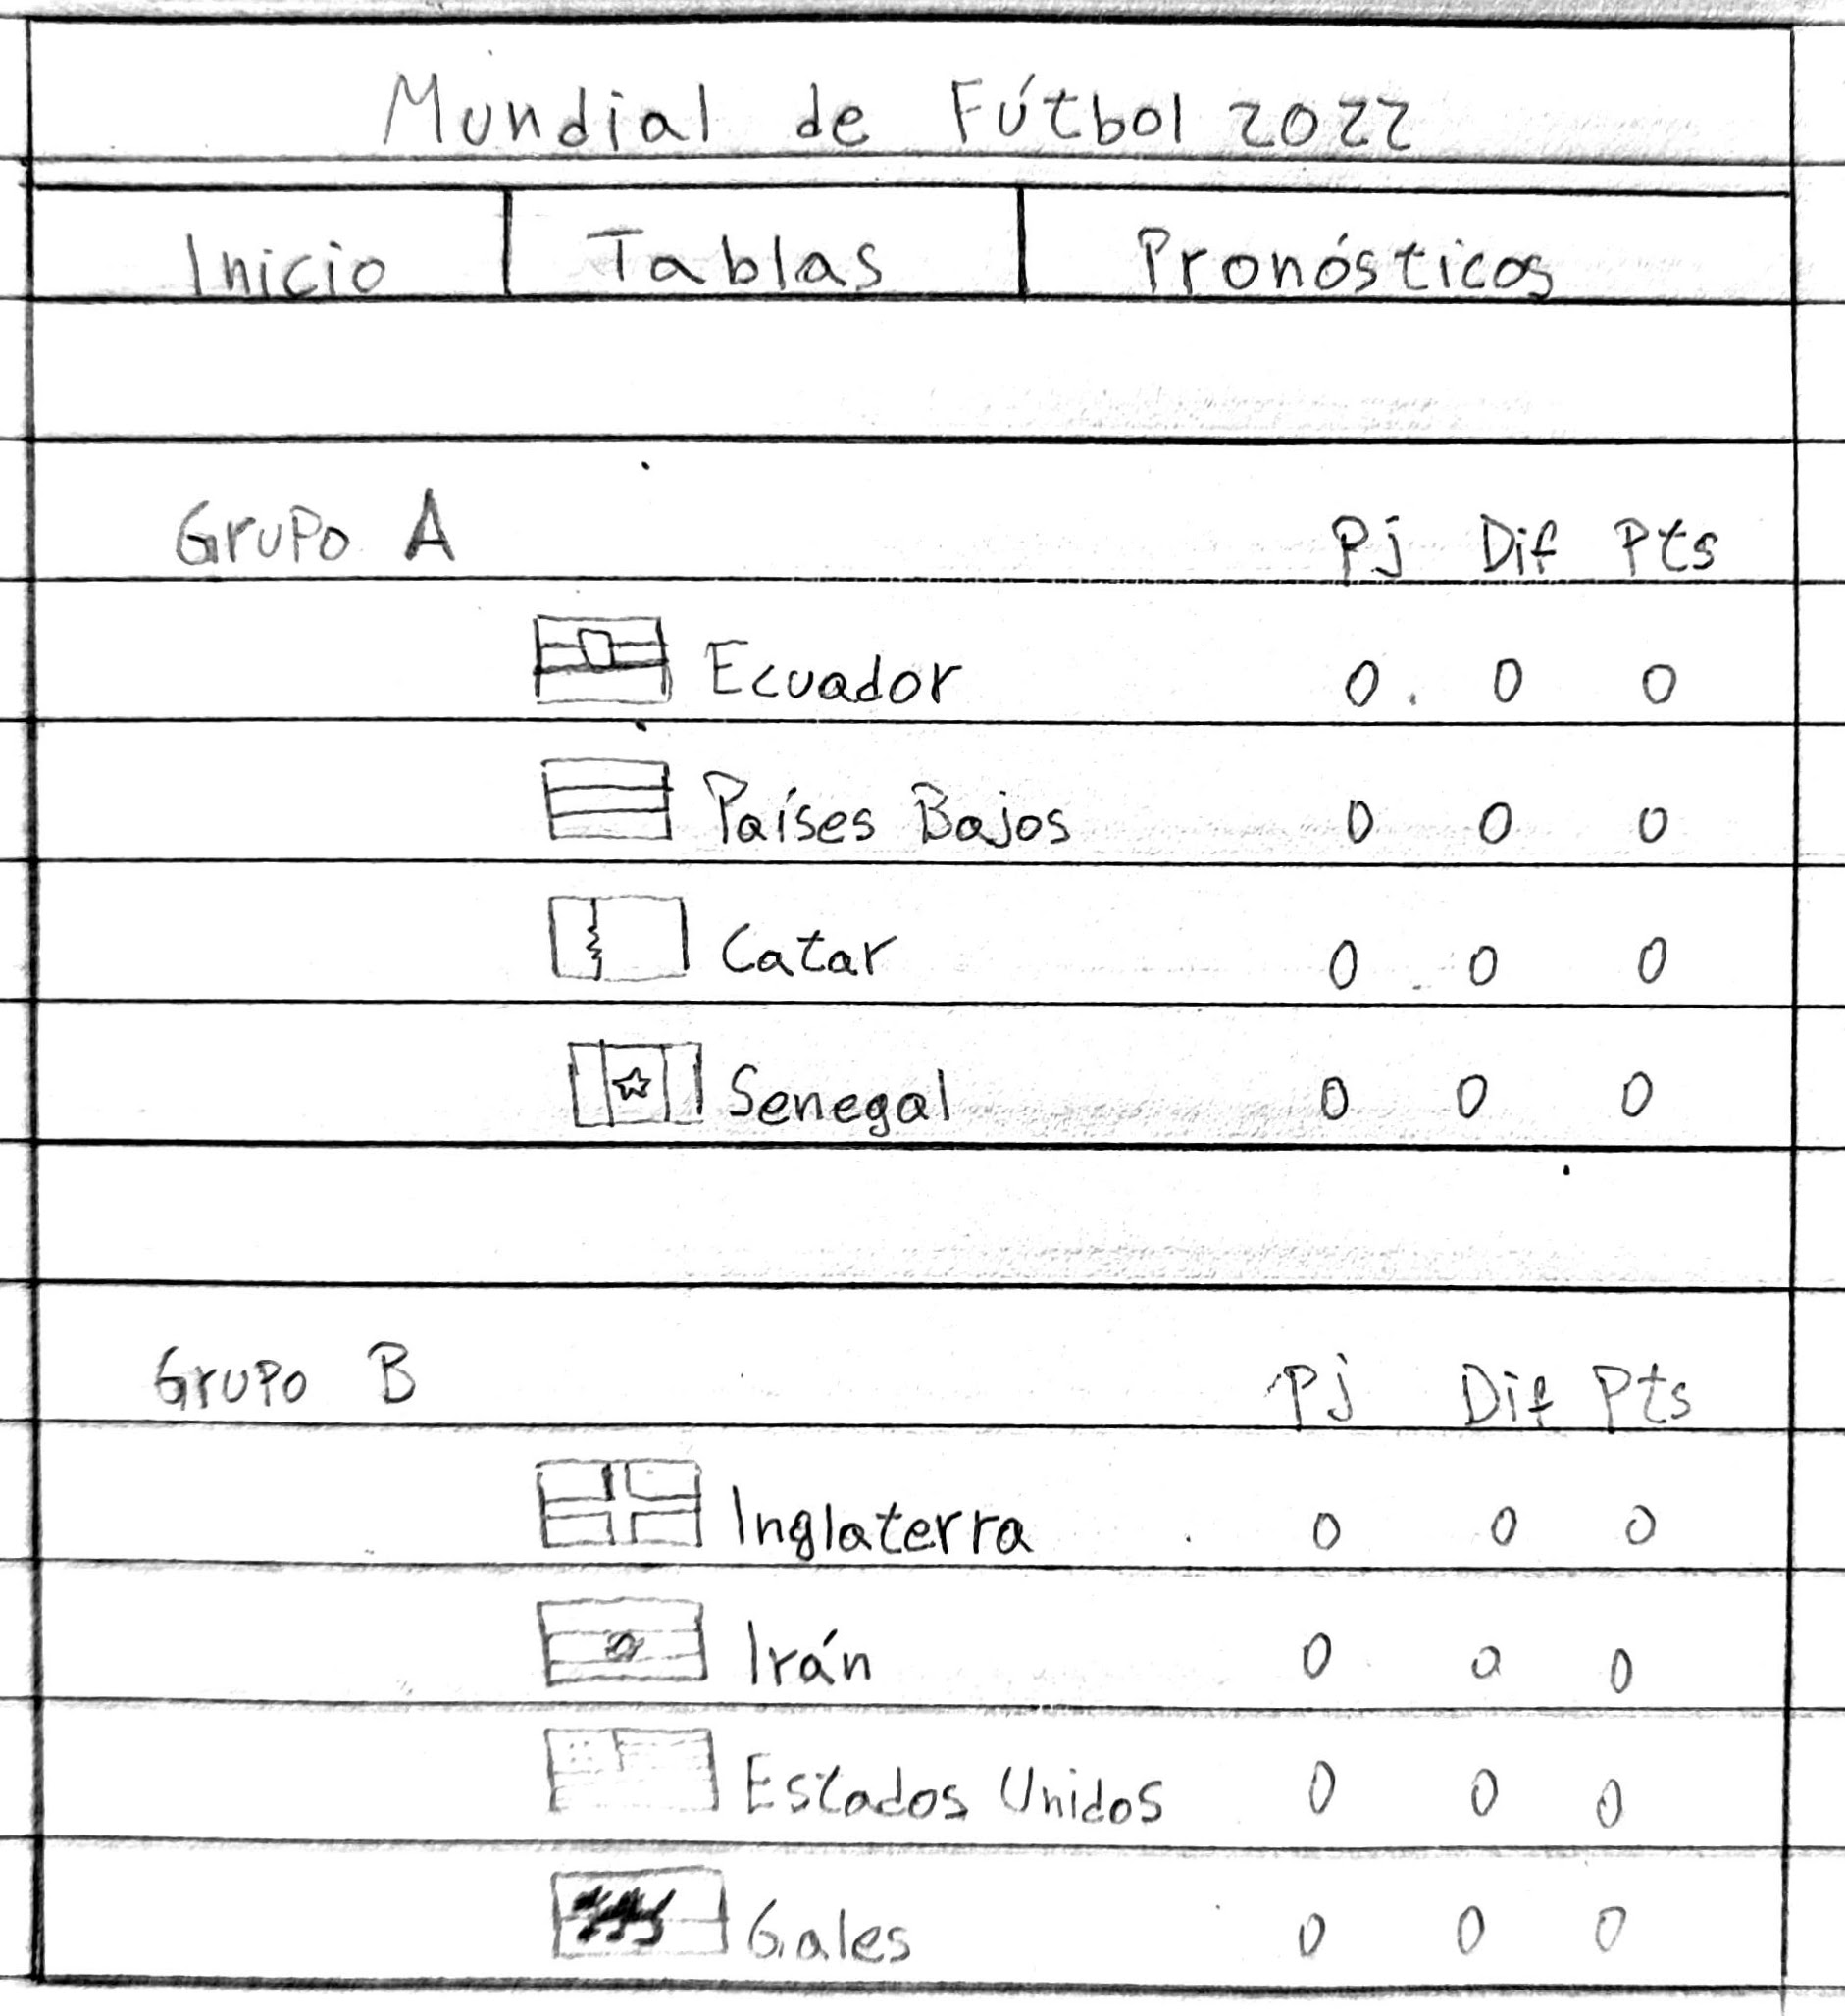 Mundial de Fútbol 2022
Inicio Tablas Pronósticos
Grupo A Pj Dif Pts
Ecuador 0 0 0
Países Bajos 0 0 0
Catar 0 0 0
Senegal 0 0 0
Grupo B Pj Dif Pts
Inglaterra 0 0 0
Irán 0 0 0
Estados Unidos 0 0 0
Gales 0 0 0